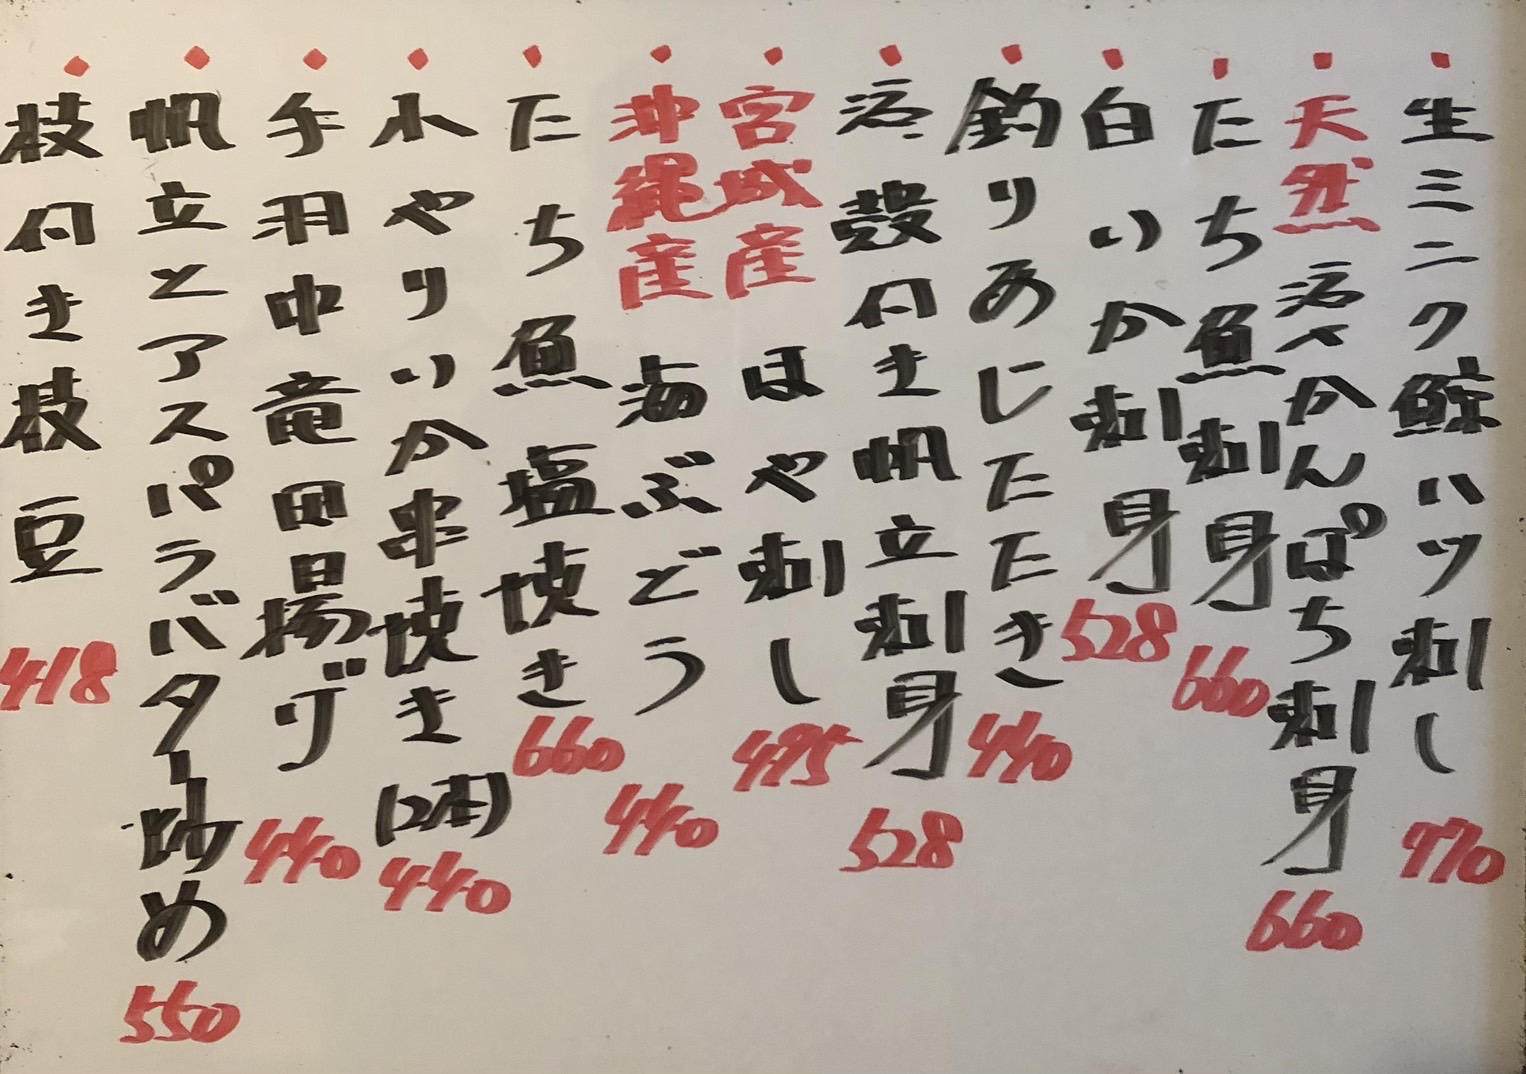 ・生ミンク鯨ハツ刺し 770
・天然活〆かんぱち刺身 660
・たち魚刺身 660
・白いか刺身 528
・釣りあじたたき 440
・活殻付き帆立刺身 528
・宮城産 ほや刺し 495
・沖縄産 海ぶどう 440
・たち魚塩焼き 660
・小やりいか串焼き(2本) 440
・手羽中竜田揚げ 440
・帆立とアスパラバター炒め 550
・枝付き枝豆 418